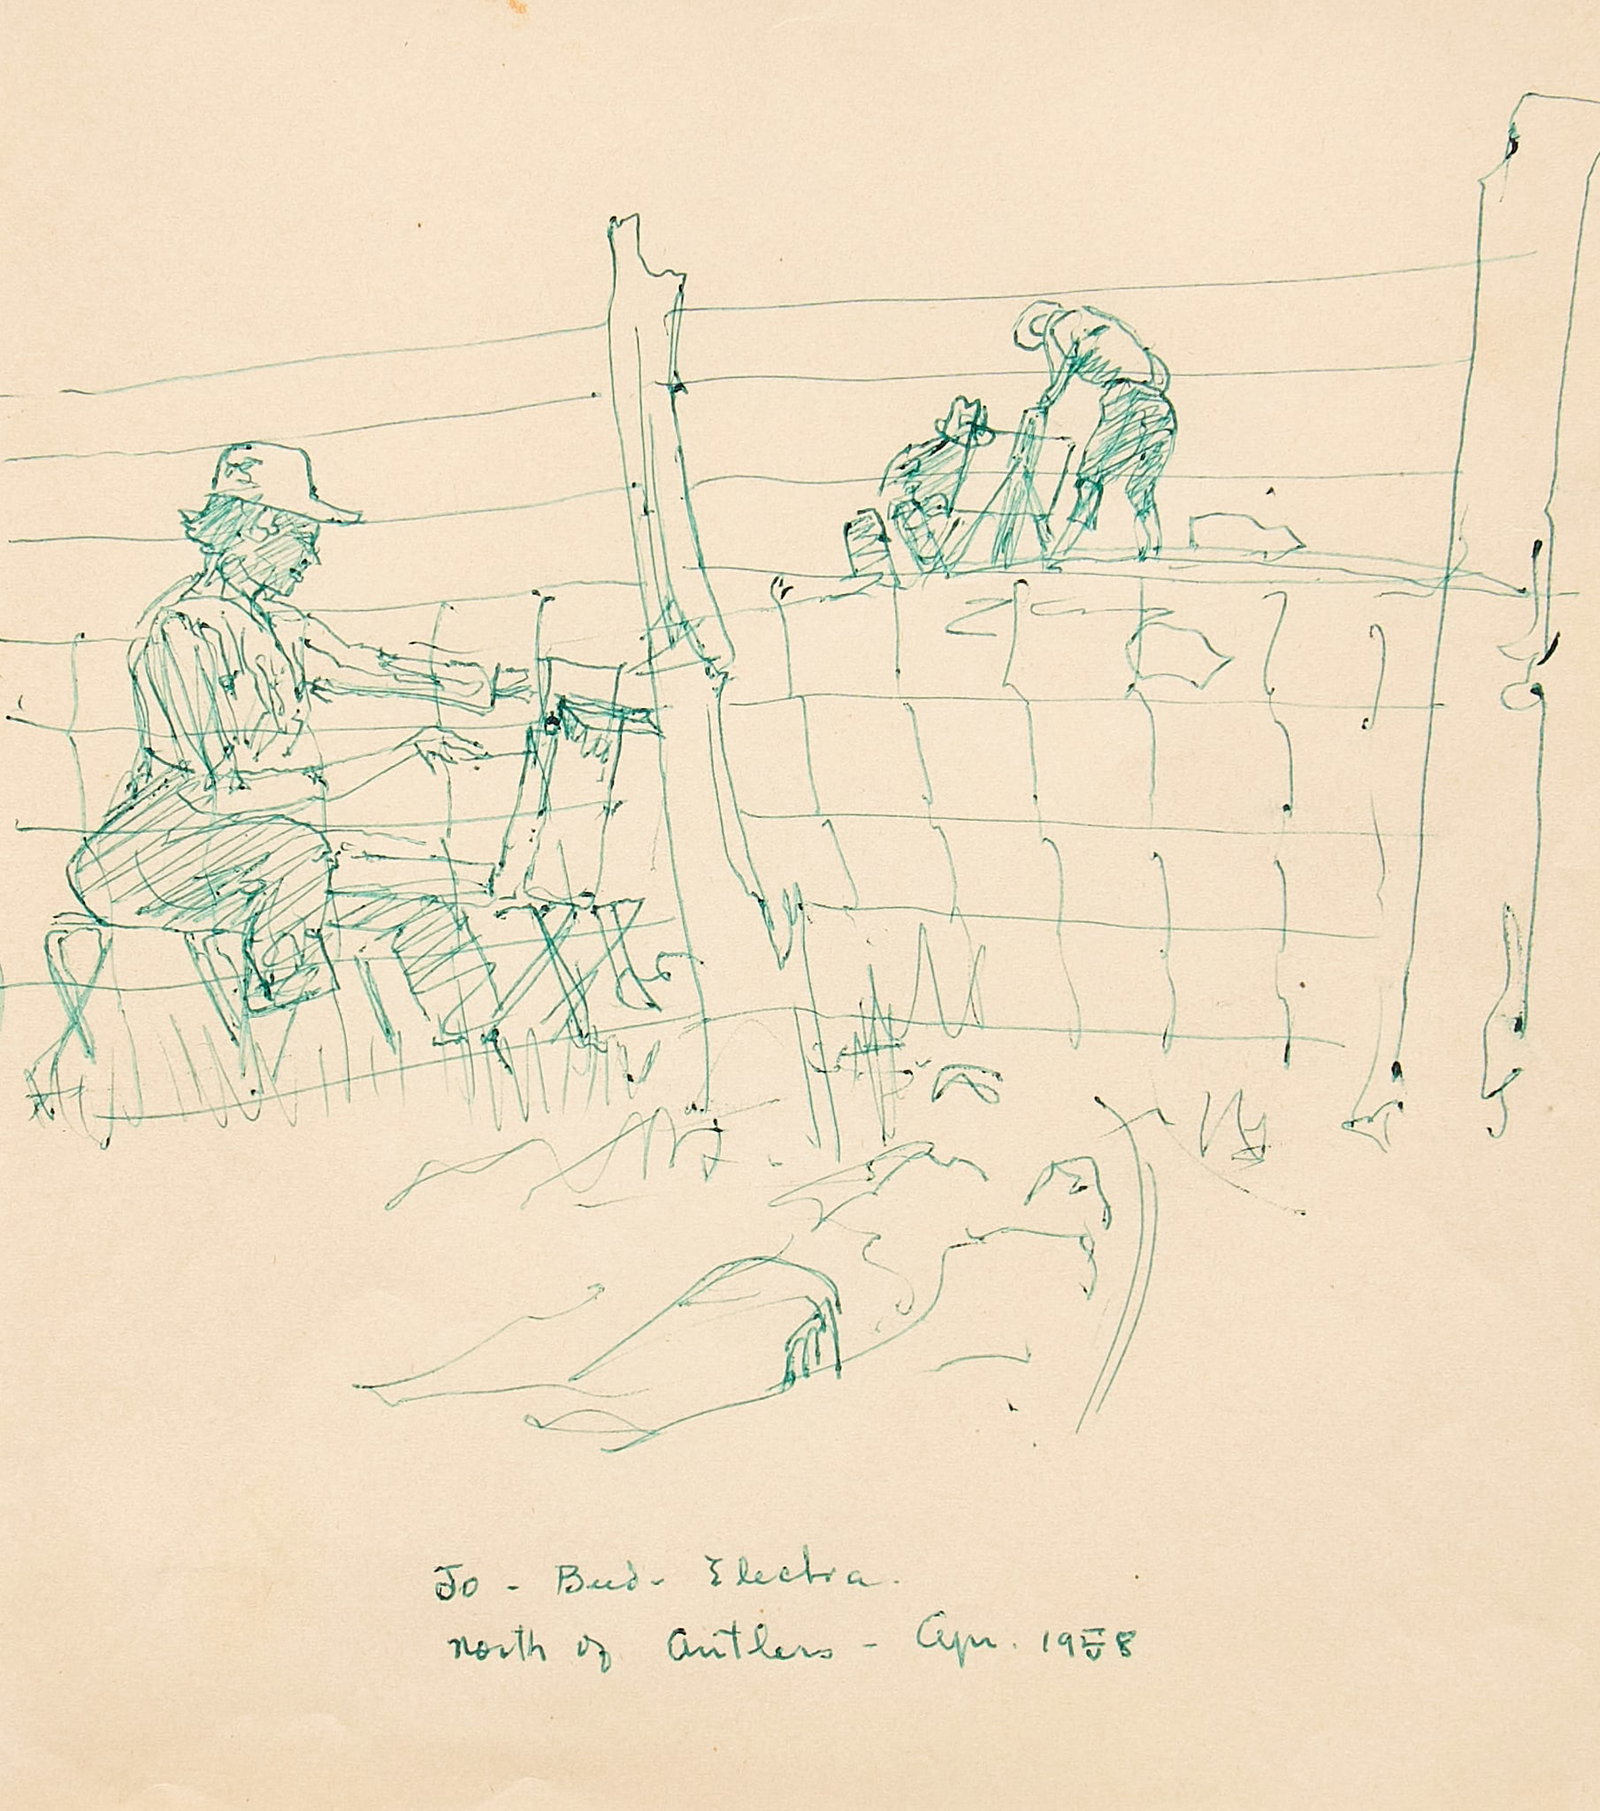 Jo - Bud - Electra.
north of Antlers - Apr. 1958